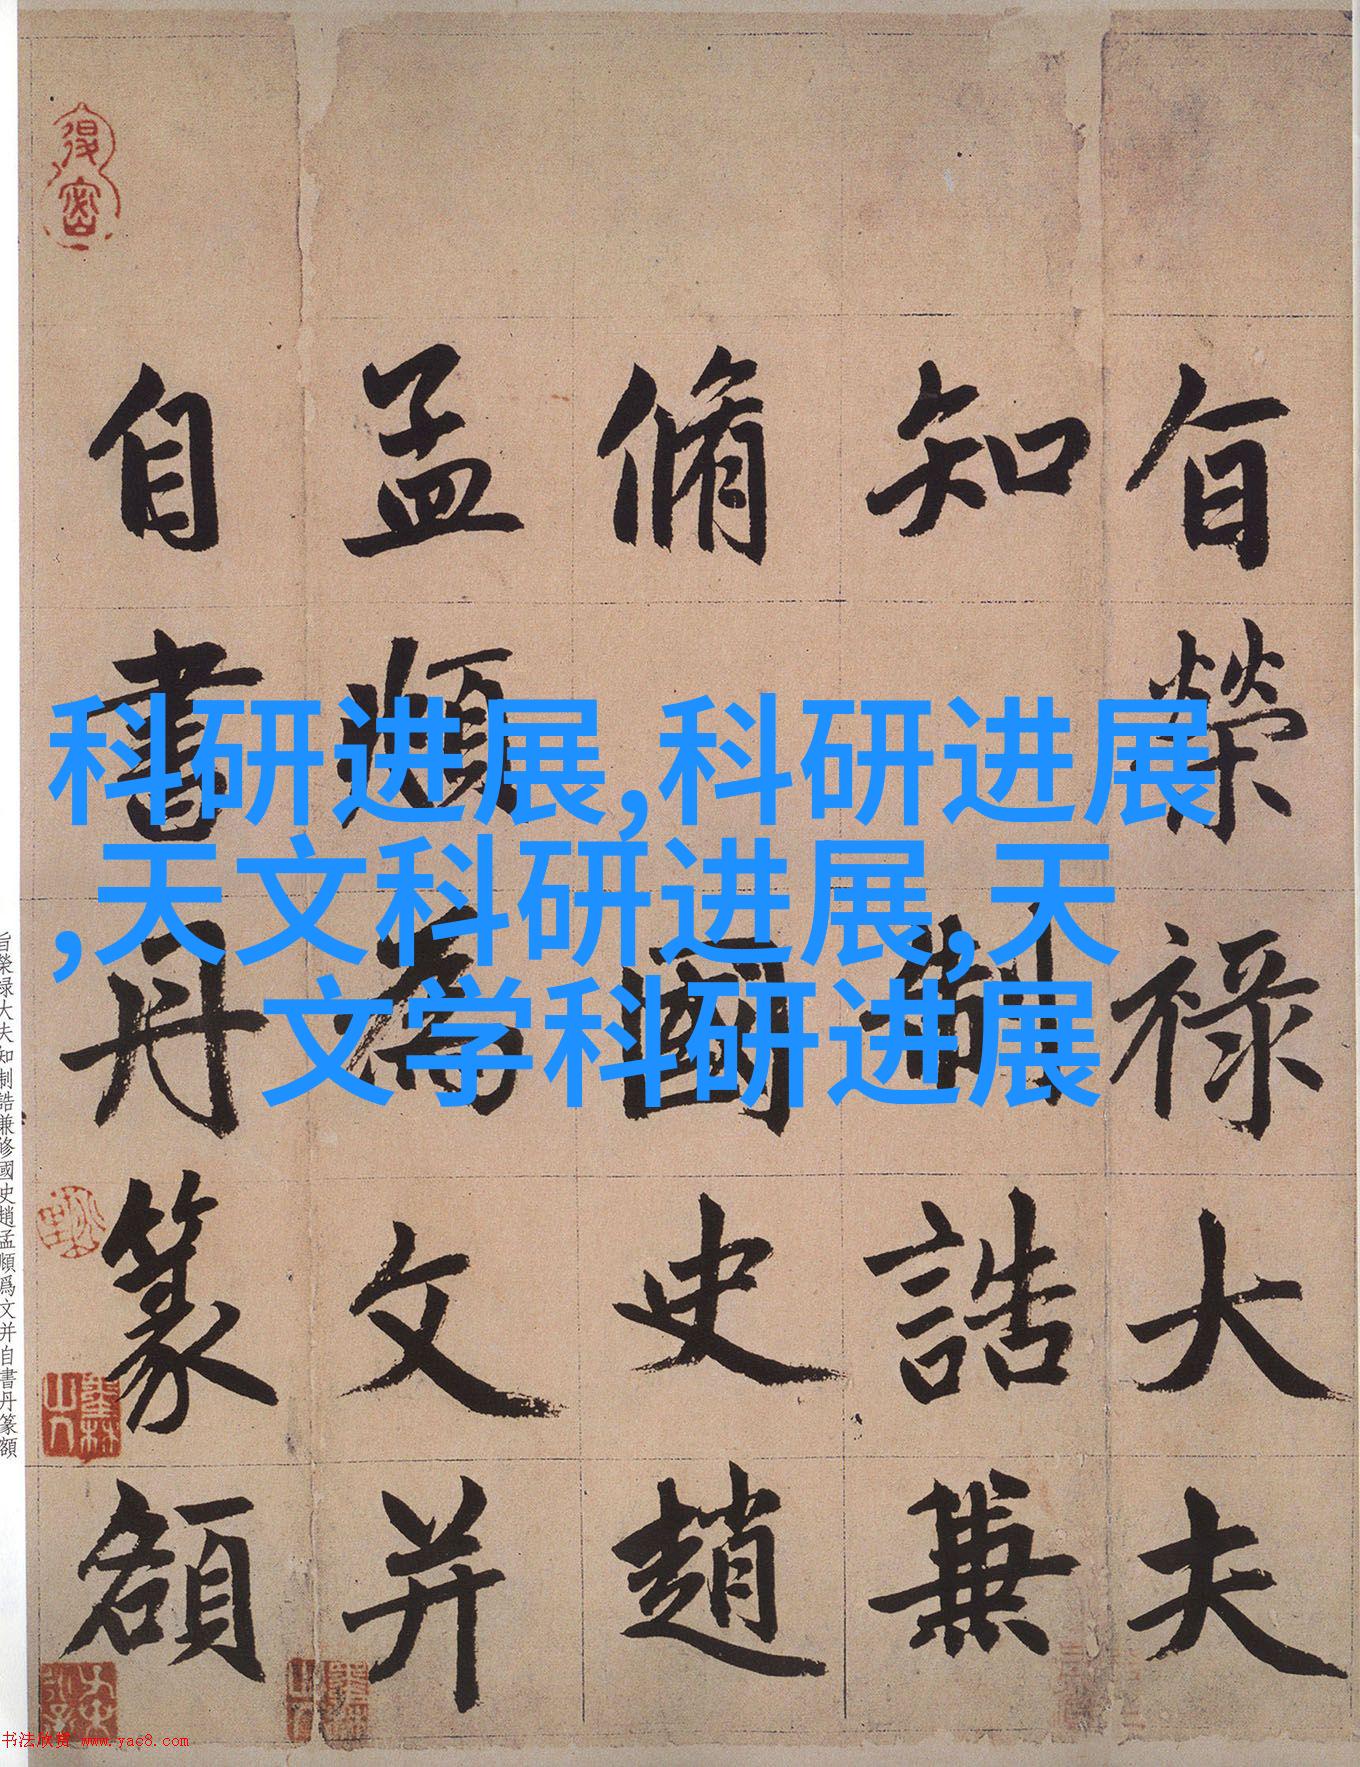 科研进展,科研进展
,天文科研进展,天
文学科研进展
旨榮祿大夫
知制誥兼
脩國史趙
孟頫為文并
自書丹篆額
旨榮禄大夫知制誥兼修國史趙孟頫爲文并自書丹篆額
书法欣赏 www.yac8.com